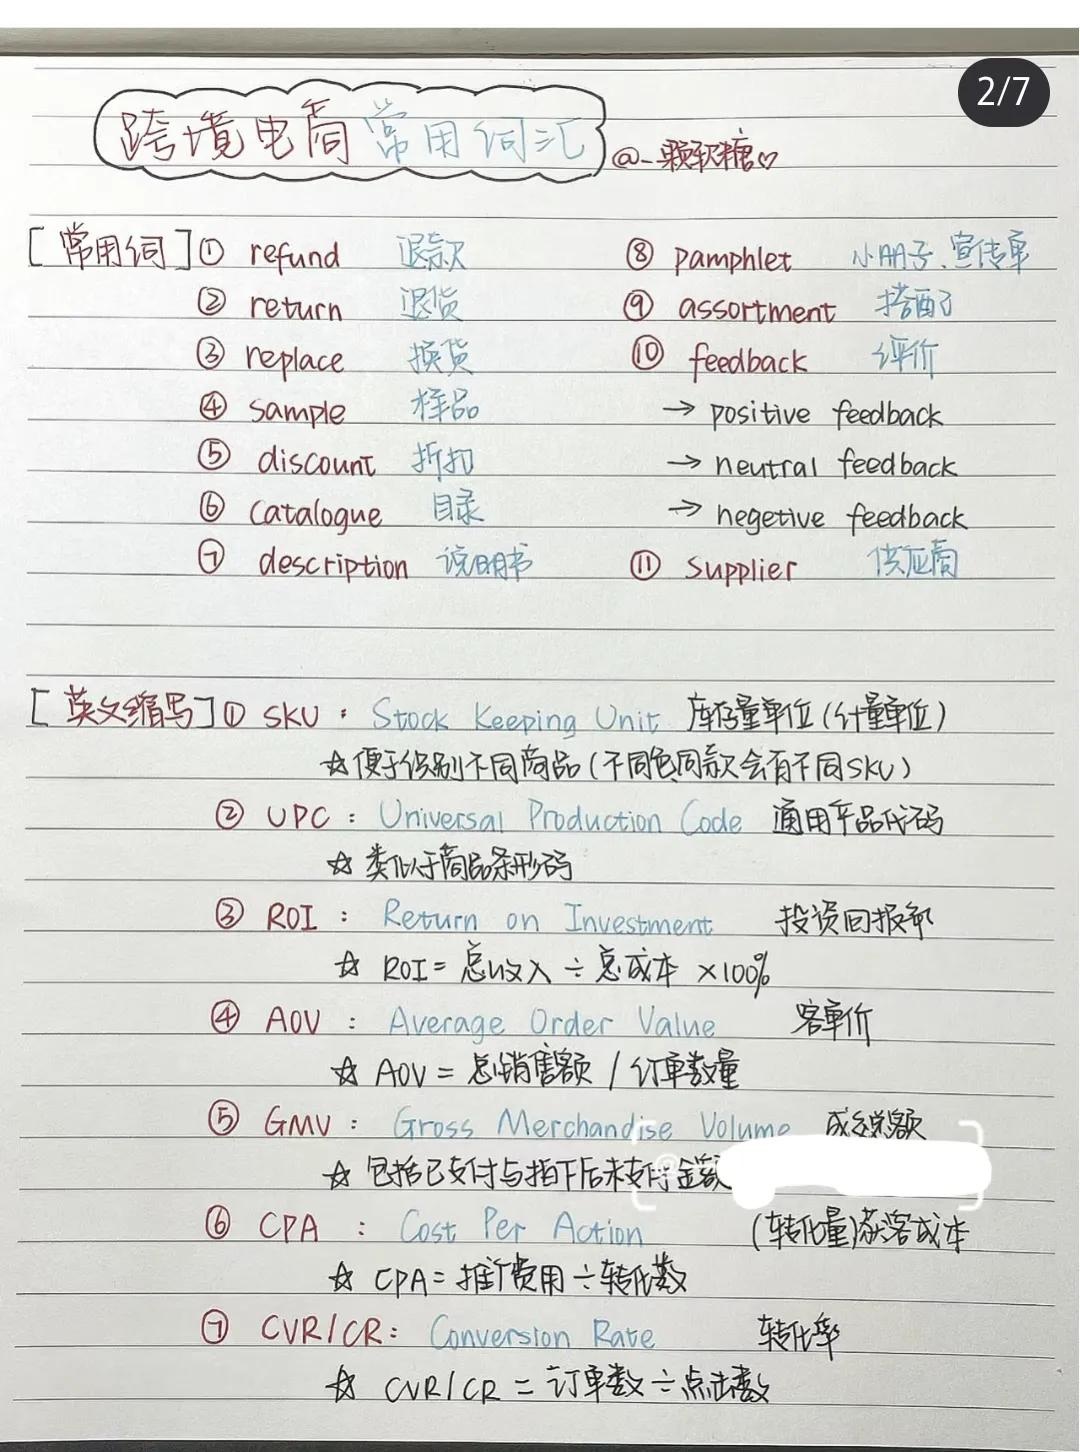 2/7
跨境电商常用词汇
@一颗软糖♡
[常用词] ① refund 退款
② return 退货
③ replace 换货
④ sample 样品
⑤ discount 折扣
⑥ catalogue 目录
⑦ description 说明书
⑧ pamphlet 小册子、宣传单
⑨ assortment 搭配
⑩ feedback 评价
→ positive feedback
→ neutral feedback
→ negetive feedback
⑪ supplier 供应商
[英文缩写] ① SKU : Stock Keeping Unit 库存量单位(计量单位)
☆便于识别不同商品(不同色同款会有不同SKU)
② UPC : Universal Production Code 通用产品代码
☆ 类似于商品条形码
③ ROI : Return on Investment 投资回报率
☆ ROI = 总收入 ÷ 总成本 ×100%
④ AOV : Average Order Value 客单价
☆ AOV = 总销售额 / 订单数量
⑤ GMV : Gross Merchandise Volume 成交总额
☆ 包括已支付与拍下后未支付金额
⑥ CPA : Cost Per Action (转化量)获客成本
☆ CPA = 推广费用 ÷ 转化数
⑦ CVR/CR : Conversion Rate 转化率
☆ CVR/CR = 订单数 ÷ 点击数